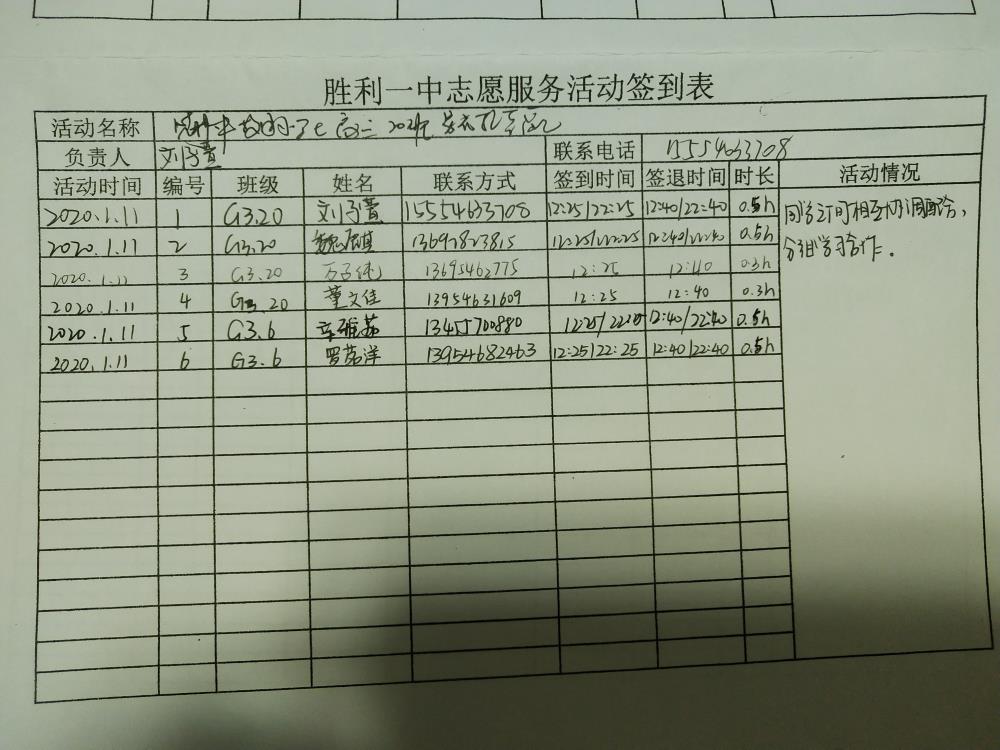 胜利一中志愿服务活动签到表
活动名称
负责人 刘子萱 联系电话 15554633708
活动时间 编号 班级 姓名 联系方式 签到时间 签退时间 时长 活动情况
2020.1.11 1 G3.20 刘子萱 15554633708 12:25/22:25 12:40/22:40 0.5h 同学之间相互协调配合,
2020.1.11 2 G3.20 13692823815 12:25/22:25 12:40/22:40 0.5h 分组学习合作.
2020.1.11 3 G3.20 13695462775 12:25 12:40 0.3h
2020.1.11 4 G3.20 董文佳 13954631609 12:25 12:40 0.3h
2020.1.11 5 G3.6 13455700880 12:25/ 12:40/22:40 0.5h
2020.1.11 6 G3.6 罗茗洋 13954682463 12:25/22:25 12:40/22:40 0.5h